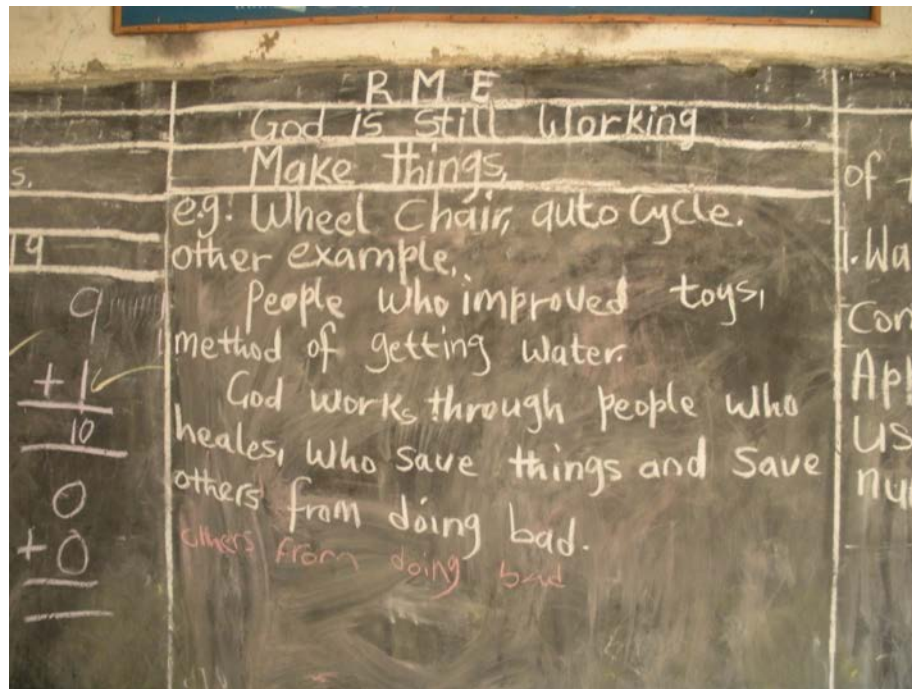 s.
19
9
+ 1
10
0
+ 0
R M E
God is still Working
Make things,
e.g: Wheel Chair, auto Cycle.
other example,
People who improved toys,
method of getting water.
God works through people who
heales, who save things and save
others from doing bad.
others from doing bad
of
1. Wa
Con
App
Us
nu